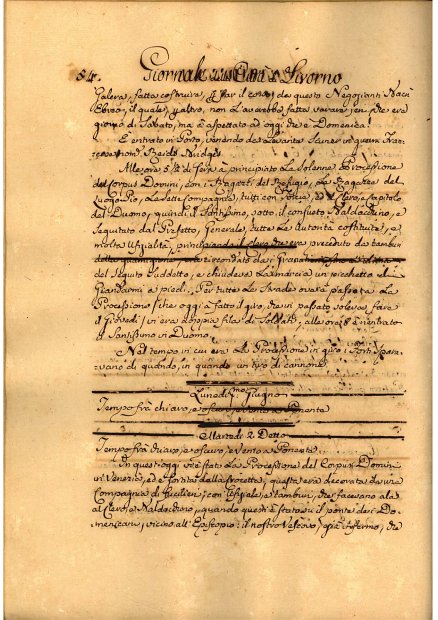 84. Giornale Città di Livorno
Galera, fatta costruire, far il corso, da questo Negoziante
Ebreo, il quale, non l'avrebbe fatta varare, era
giorno di Sabato, ma è aspettato ad oggi che è Domenica!
È entrato in Porto, venendo da Levante
Alle ore 5½ di sera à principiato la Solenne Processione
del Corpus Domini, con i Ragazzi del Refugio, le Ragazze del
Luogo Pio, le Sette Compagnie, tutti con Torcia, ed il Clero, e Capitolo
del Duomo, quindi il Santissimo, sotto il consueto Baldacchino, e
seguitato dal Prefetto, Generale, tutte le Autorità costituite, e
molta Ufizialità, principiando il clero che era preceduto da tambu
circondato da i Granatieri
del seguito suddetto, e chiudeva la marcia un picchetto di
Giandarmi a piedi. Per tutte le Strade ov'è passata la
Processione oggi à fatto il giro, che in passato soleva fare
il Giovedì, vi era doppia fila di Soldati, alle ore 8 è rientrato
il Santissimo in Duomo.
Nel tempo in cui era la Processione in giro i Forti Spara-
vano di quando, in quando un tiro di cannone.
Lunedì pmo. Giugno
Tempo frà chiaro, e oscuro, e vento a Ponente
Martedì 2 Detto
Tempo frà chiaro, e oscuro, e vento a Ponente.
In quest'oggi vi è stato la Processione del Corpus Domini
in Venezia, ed è sortita dalla Crocetta, questa era decorata da una
Compagnia di Fucilieri, con Ufiziale, e tamburi, che facevano ala
al Clero, e Baldacchino, quando questi è stato su il ponte dei Do-
menicani, vicino all'Episcopio: il nostro Vescovo, già infermo, che